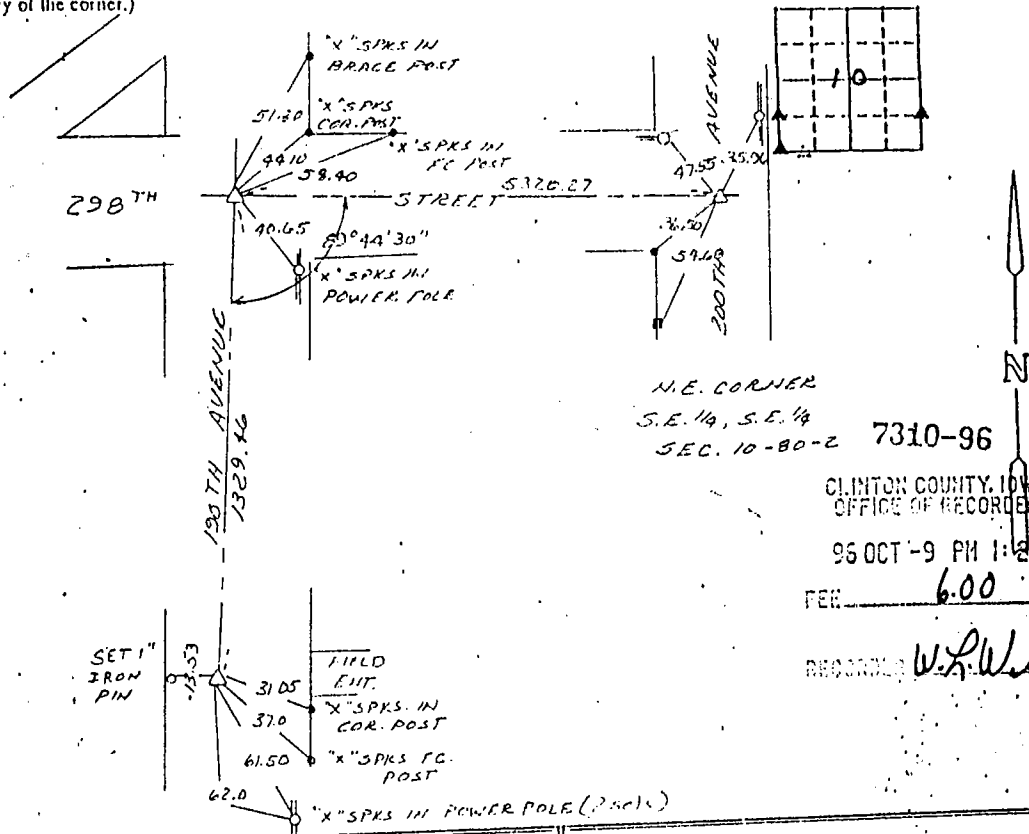 y of the corner.)
"X" SPKS IN
BRACE POST
51.30
"X" SPKS
COR. POST
44.10
"X" SPKS IN
FC POST
58.40
298TH
STREET
5326.27
40.65
44'30"
"X" SPKS IN
POWER POLE
AVENUE
47.55
35.00
36.50
59.60
200TH
10
N
N.E. CORNER
S.E. 1/4, S.E. 1/4
SEC. 10-80-2
7310-96
CLINTON COUNTY, IOW
OFFICE OF RECORDE
96 OCT -9 PM 1:2
FEE 6.00
RECORDER W.L.W
190TH AVENUE
1329.46
SET 1"
IRON
PIN
FIELD
ENT.
31.05
"X" SPKS. IN
COR. POST
37.0
61.50
"X" SPKS FC.
POST
62.0
"X" SPKS IN POWER POLE